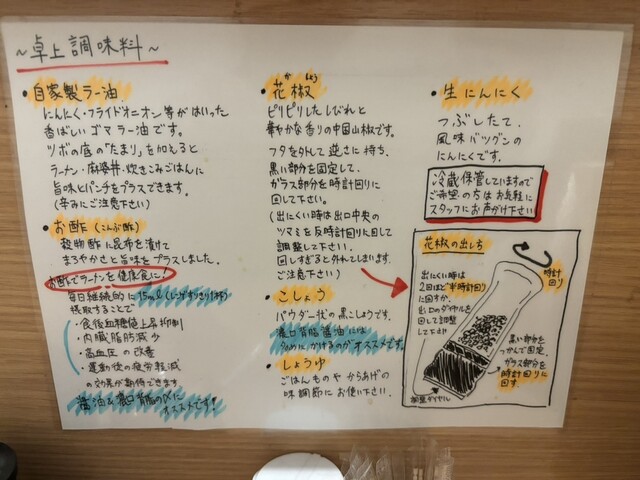 ~卓上調味料~
・自家製ラー油
にんにく・フライドオニオン等がはいった
香ばしいゴマラー油です。
ツボの底の「たまり」を加えると
ラーメン・麻婆丼・炊きこみごはんに
旨味とパンチをプラスできます。
(辛みにご注意下さい)
・お酢(こんぶ酢)
穀物酢に昆布を漬けて
まろやかさと旨味をプラスしました。
お酢でラーメンを健康食に!
毎日継続的に15ml
摂取することで
・食後血糖値上昇抑制
・内臓脂肪減少
・高血圧の改善
・運動後の疲労軽減
の効果が期待できます
醤油&濃口背脂の〆に
オススメです!
・花椒
か しょう
ピリピリしたしびれと
華やかな香りの中国山椒です。
フタを外して逆さに持ち、
黒い部分を固定して、
ガラス部分を時計回りに
回して下さい。
(出にくい時は出口中央の
ツマミを反時計回りに回して
調整して下さい。
回しすぎると外れてしまいます。
ご注意下さい)
・こしょう
パウダー状の黒こしょうです。
濃口背脂醤油には
多めに、かけるのがオススメです。
・しょうゆ
ごはんものやからあげの
味調節にお使い下さい。
・生にんにく
つぶしたて、
風味バツグンの
にんにくです。
冷蔵保管していますので
ご希望の方はお気軽に
スタッフにお声がけ下さい
花椒の出し方
時計
回り
出にくい時は
2回ほど半時計回り
に回すか、
出口のダイヤルを
回して調整
して下さい
黒い部分を
つかんで固定、
ガラス部分を
時計回りに
回す。
調整ダイヤル